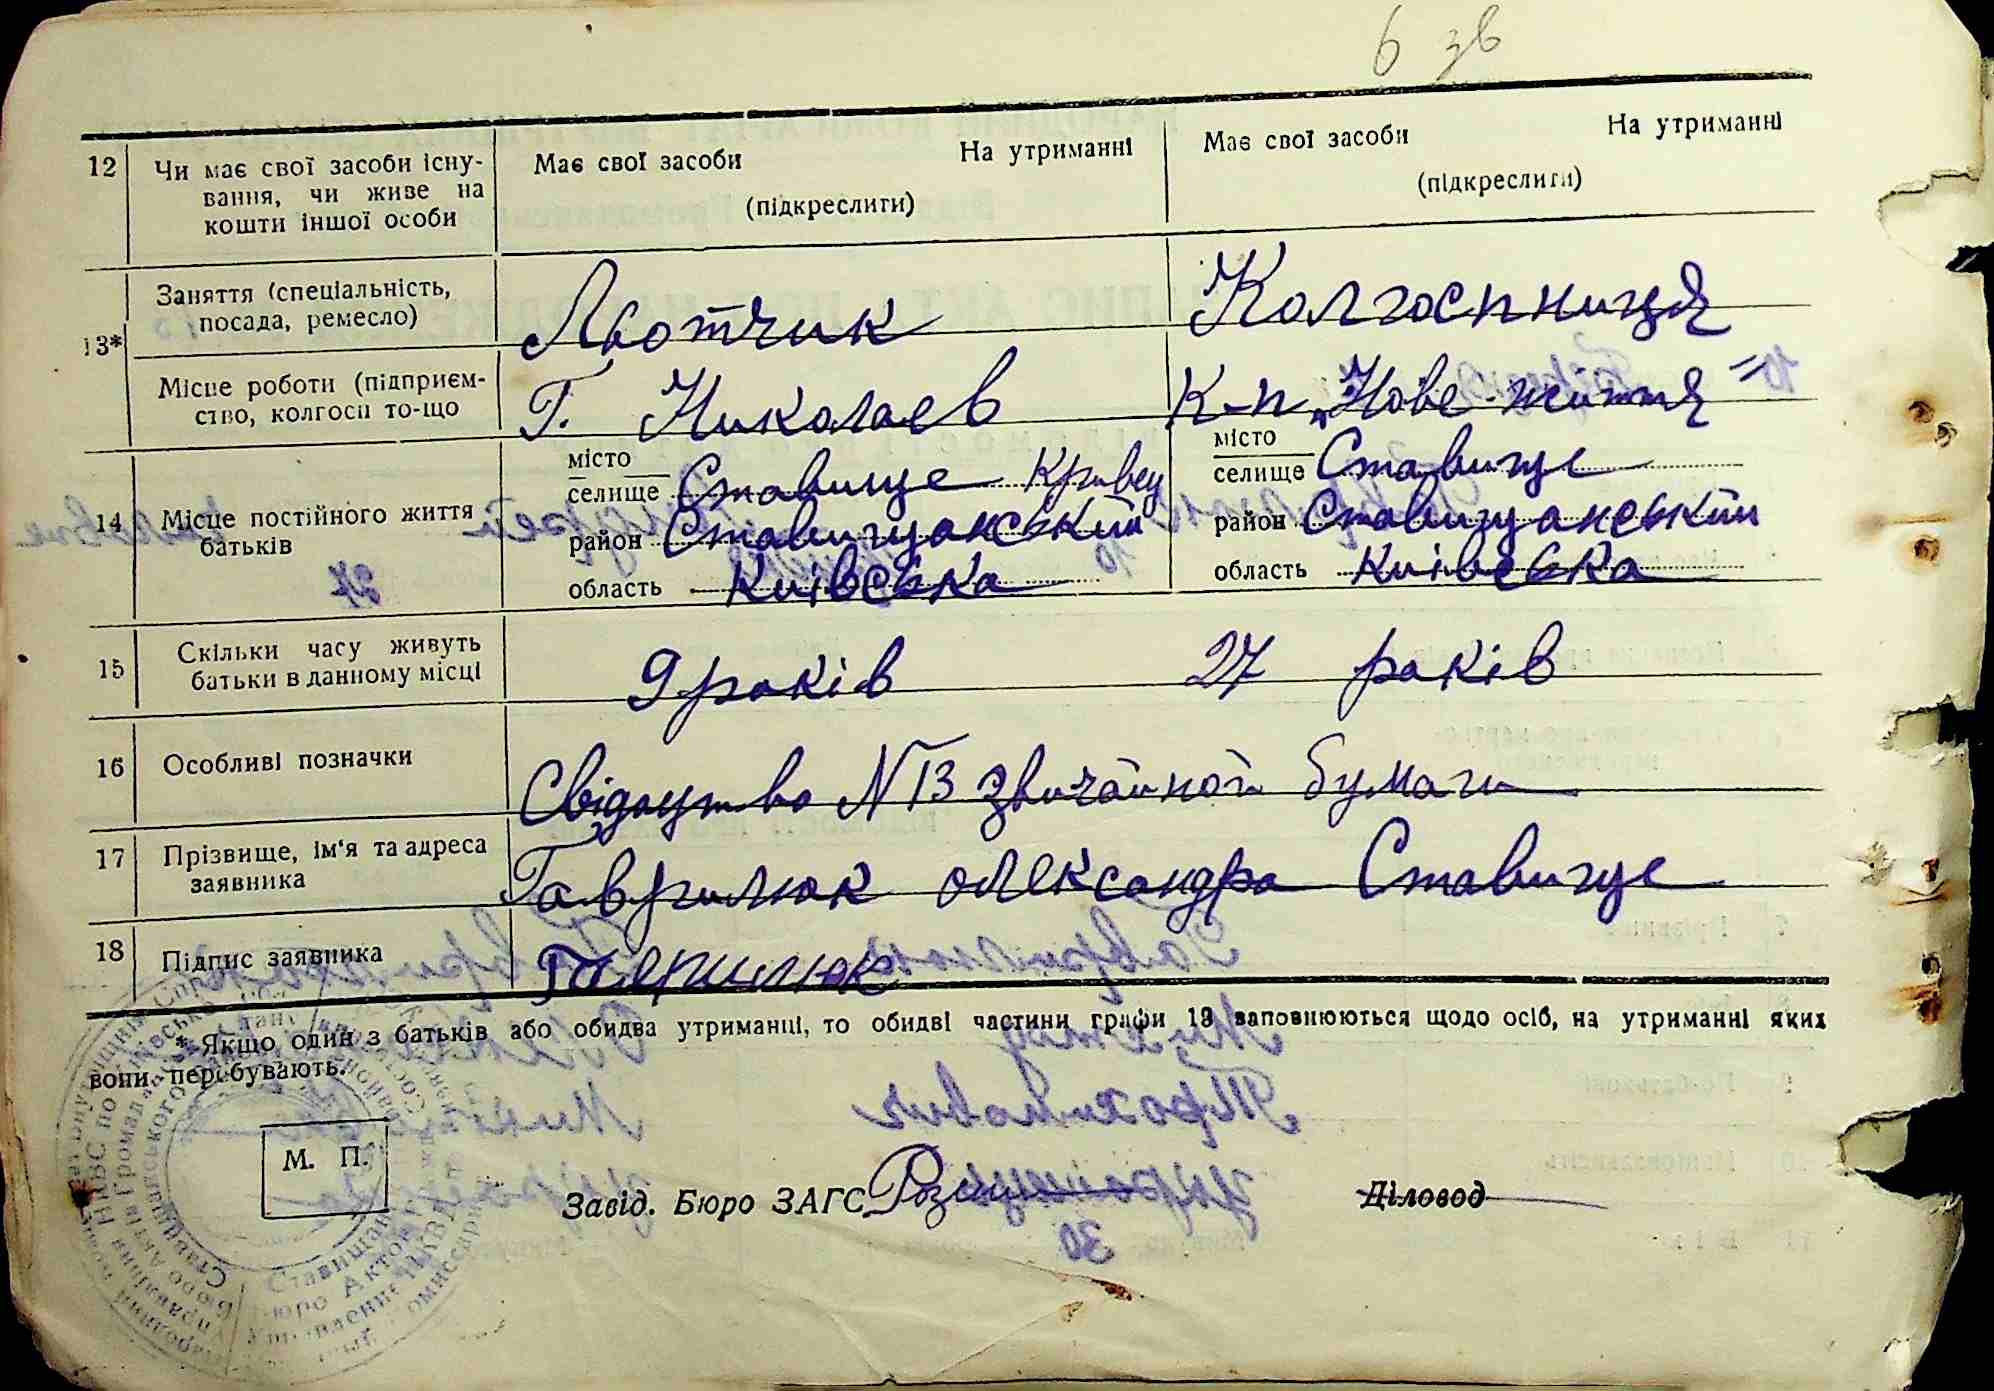 6 зв
12 Чи має свої засоби існу-
вання, чи живе на
кошти іншої особи
Має свої засоби На утриманні
(підкреслити)
Має свої засоби На утриманні
(підкреслити)
13*
Заняття (спеціальність,
посада, ремесло)
Льотчик
Колгоспниця
Місце роботи (підприєм-
ство, колгосп то-що
Г. Николаев
К-п „Нове життя"
14 Місце постійного життя
батьків
місто
селище Ставище Кривец
район Ставищанський
область Київська
місто
селище Ставище
район Ставищанський
область Київська
15 Скільки часу живуть
батьки в данному місці
9 років 27 років
16 Особливі позначки
Свідоцтво N 13 звичайной бумаги
17 Прізвище, ім'я та адреса
заявника
Гаврилюк олександра Ставище
18 Підпис заявника
Гаврилюк
* Якщо один з батьків або обидва утриманці, то обидві частини графи 13 заповнюються щодо осіб, на утриманні яких
вони перебувають.
М. П.
Завід. Бюро ЗАГС
Діловод